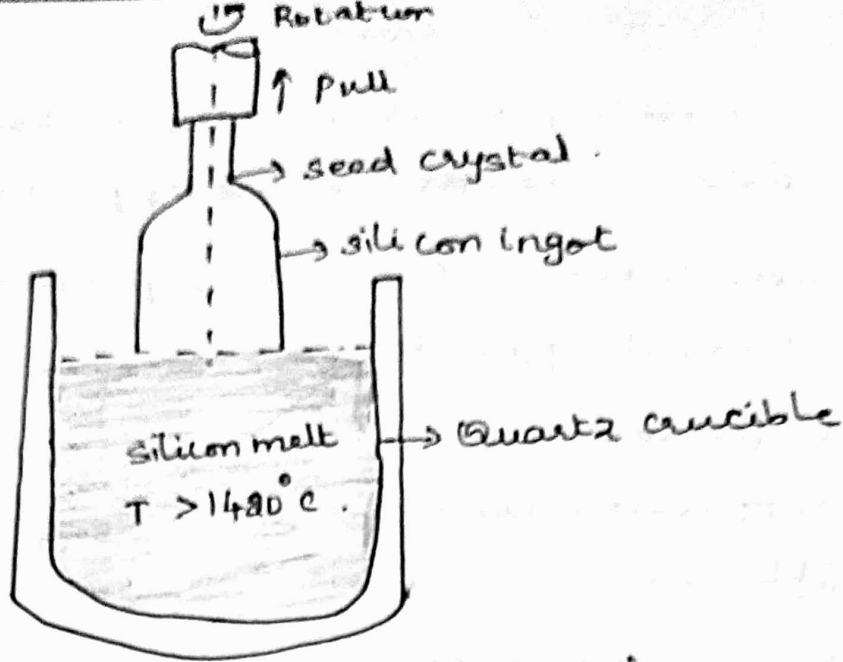 Rotation
↑ Pull
→ seed crystal.
→ silicon ingot
silicon melt
→ Quartz crucible
T > °C.